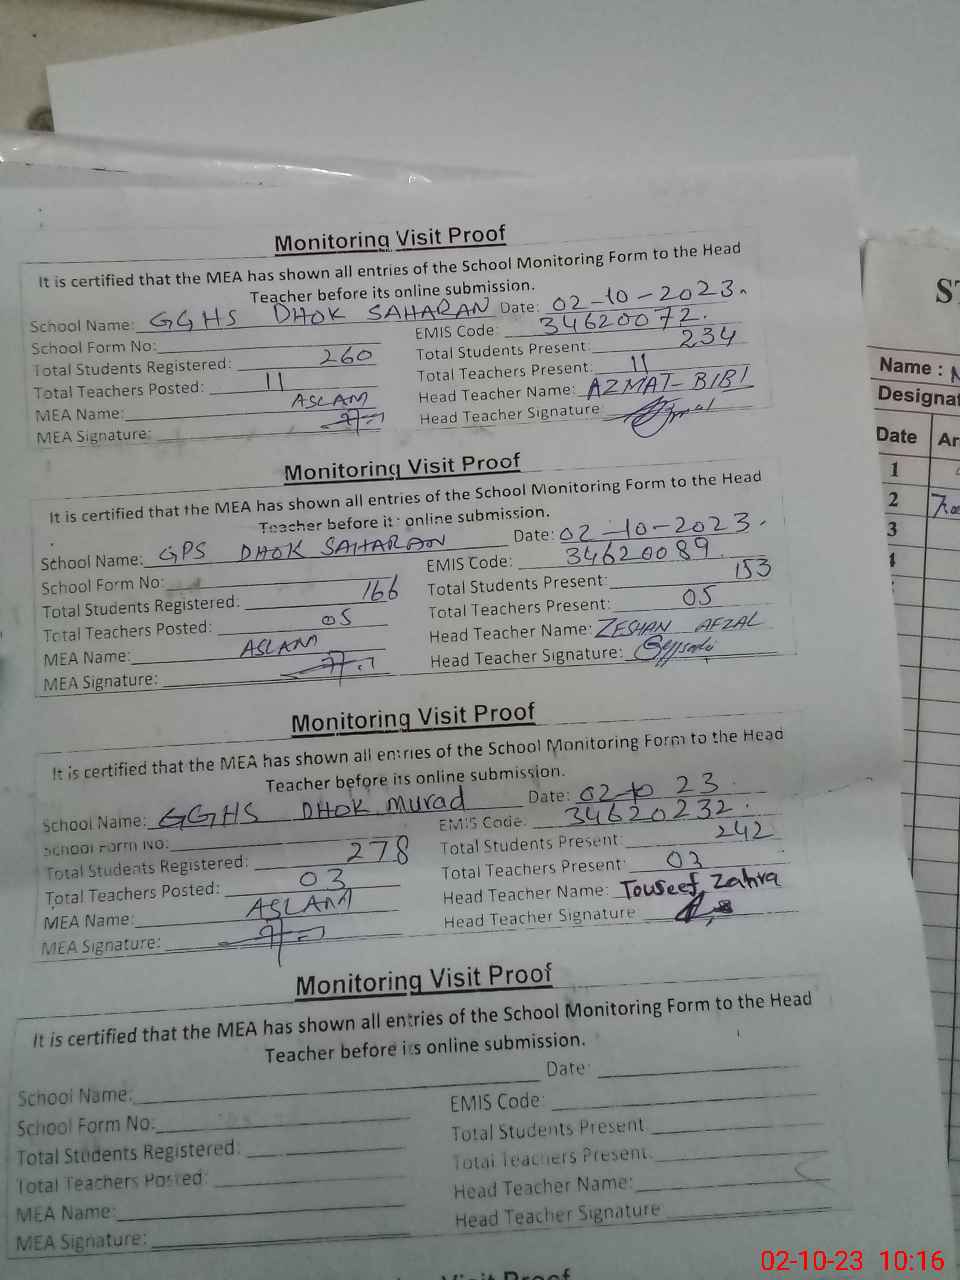 Monitoring Visit Proof
It is certified that the MEA has shown all entries of the School Monitoring Form to the Head
Teacher before its online submission.
School Name: GGHS DHOK SAHARAN Date: 02-10-2023.
School Form No: EMIS Code: 34620072.
Total Students Registered: 260 Total Students Present: 234
Total Teachers Posted: 11 Total Teachers Present: 11
MEA Name: ASLAM Head Teacher Name: AZMAT-BIBI
MEA Signature: Head Teacher Signature
Monitoring Visit Proof
It is certified that the MEA has shown all entries of the School Monitoring Form to the Head
Teacher before its online submission.
School Name: GPS DHOK SAHARAN Date: 02-10-2023.
School Form No: EMIS Code: 34620089
Total Students Registered: 166 Total Students Present: 153
Total Teachers Posted: 05 Total Teachers Present: 05
MEA Name: ASLAM Head Teacher Name: ZESHAN AFZAL
MEA Signature: Head Teacher Signature:
Monitoring Visit Proof
It is certified that the MEA has shown all entries of the School Monitoring Form to the Head
Teacher before its online submission.
School Name: GGHS DHOK Murad Date: 02-10 23
School Form No: EMIS Code: 34620232.
Total Students Registered: 278 Total Students Present: 242
Total Teachers Posted: 03 Total Teachers Present: 03
MEA Name: ASLAM Head Teacher Name: Touseef Zahra
MEA Signature: Head Teacher Signature
Monitoring Visit Proof
It is certified that the MEA has shown all entries of the School Monitoring Form to the Head
Teacher before its online submission.
School Name: Date:
School Form No: EMIS Code:
Total Students Registered: Total Students Present
Total Teachers Posted: Total Teachers Present:
MEA Name: Head Teacher Name:
MEA Signature: Head Teacher Signature
Visit Proof
ST
Name :
Designat
Date Ar
1
2
3
02-10-23 10:16